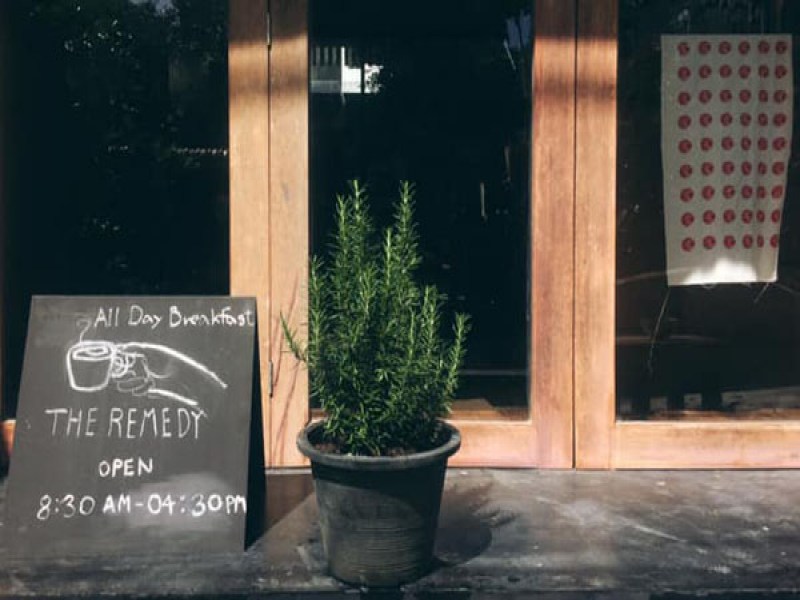 All Day Breakfast
THE REMEDY
OPEN
8:30 AM-04:30PM